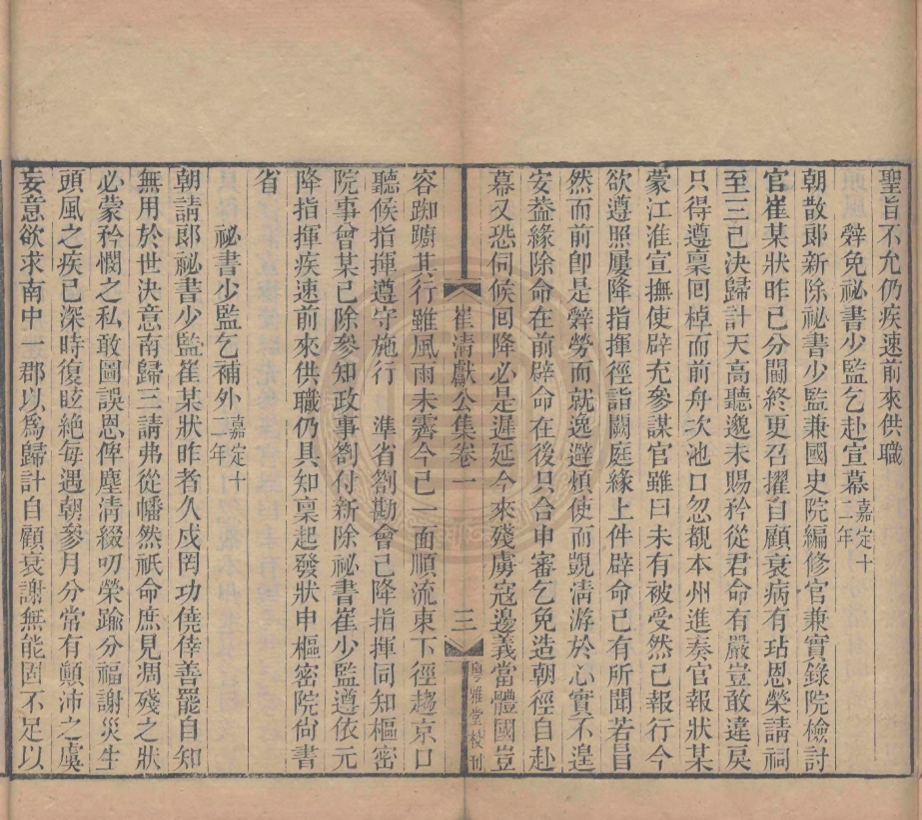 聖旨不允仍疾速前來供職
辭免祕書少監乞赴宣幕嘉定十二年
朝散郞新除祕書少監兼國史院編修官兼實錄院檢討
官崔某狀昨已分閫終更召擢自顧衰病有玷恩榮請祠
至三已決歸計天高聽邈未賜矜從君命有嚴豈敢違戾
只得遵稟回棹而前舟次池口忽覩本州進奏官報狀某
蒙江淮宣撫使辟充參謀官雖曰未有被受然已報行今
欲遵照屢降指揮徑詣闕庭緣上件辟命已有所聞若昌
然而前卽是辭勞而就逸避煩使而覬淸游於心實不遑
安葢緣除命在前辟命在後只合申審乞免造朝徑自赴
幕又恐伺候回降必是遲延今來殘虜寇邊義當體國豈
崔淸獻公集卷一
三
粵雅堂校刊
容踟躕其行雖風雨未霽今已一面順流東下徑趨京口
聽候指揮遵守施行　準省劄勘會已降指揮同知樞密
院事曾某已除參知政事劄付新除祕書崔少監遵依元
降指揮疾速前來供職仍具知稟起發狀申樞密院尙書
省
祕書少監乞補外嘉定十二年
朝請郞祕書少監崔某狀昨者久戍罔功僥倖善罷自知
無用於世決意南歸三請弗從幡然祇命庶見凋殘之狀
必蒙矜憫之私敢圖誤恩俾塵淸綴叨榮踰分福謝災生
頭風之疾已深時復眩絶每遇朝參月分常有顚沛之虞
妄意欲求南中一郡以爲歸計自顧衰謝無能固不足以